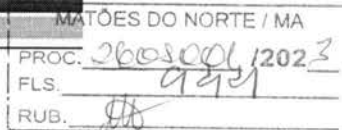 MATÕES DO NORTE / MA
PROC. 2608001 /2023
FLS. 999
RUB.